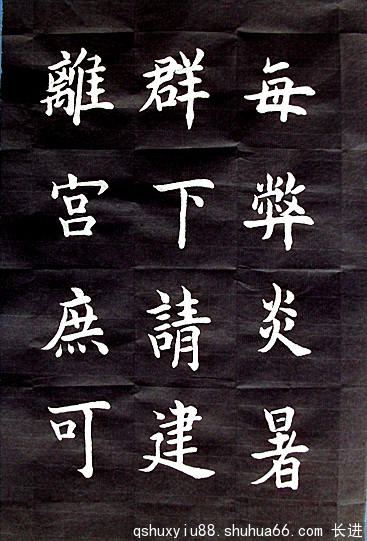 每弊炎暑
群下請建
離宮庶可
qshuxyiu88.shuhua66.com 长进